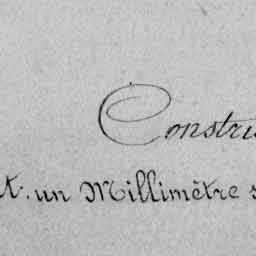 Constru
t. un Millimètre s